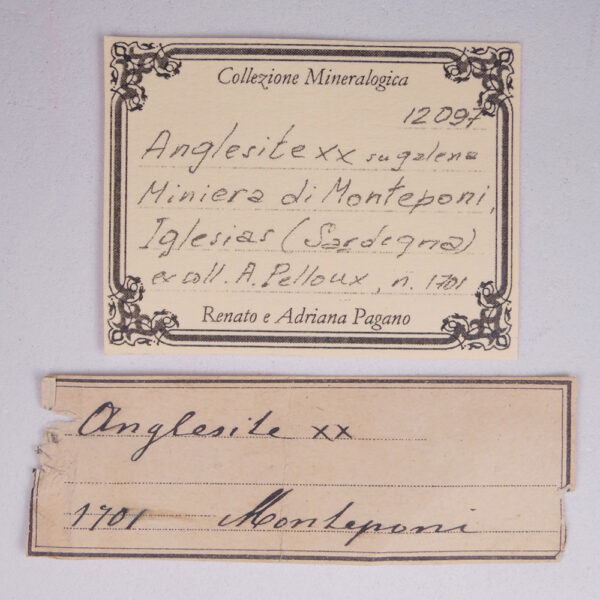 Collezione Mineralogica
12097
Anglesite xx su galena
Miniera di Monteponi,
Iglesias (Sardegna)
ex coll. A. Pelloux, n. 1701
Renato e Adriana Pagano
Anglesite xx
1701 Monteponi